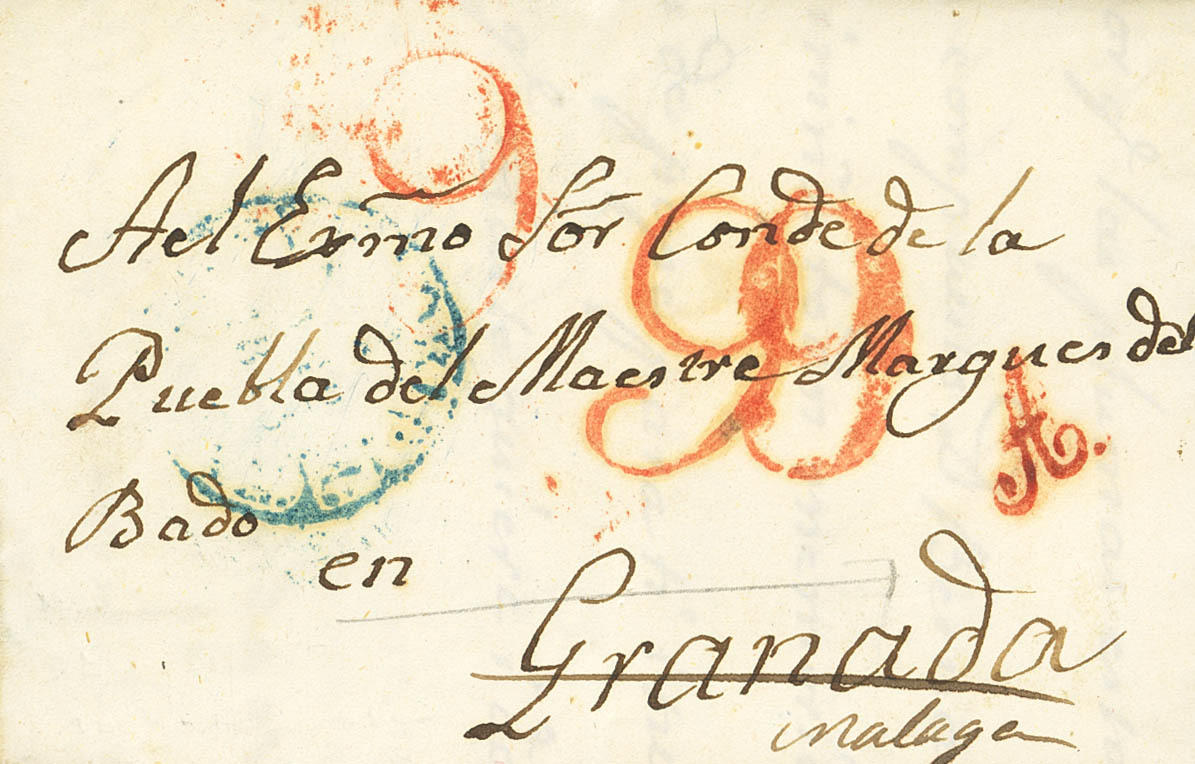 Ael Exmo Sor. Conde de la
Puebla del Maestre Marques del
Bado
en
Granada
Malaga
A.